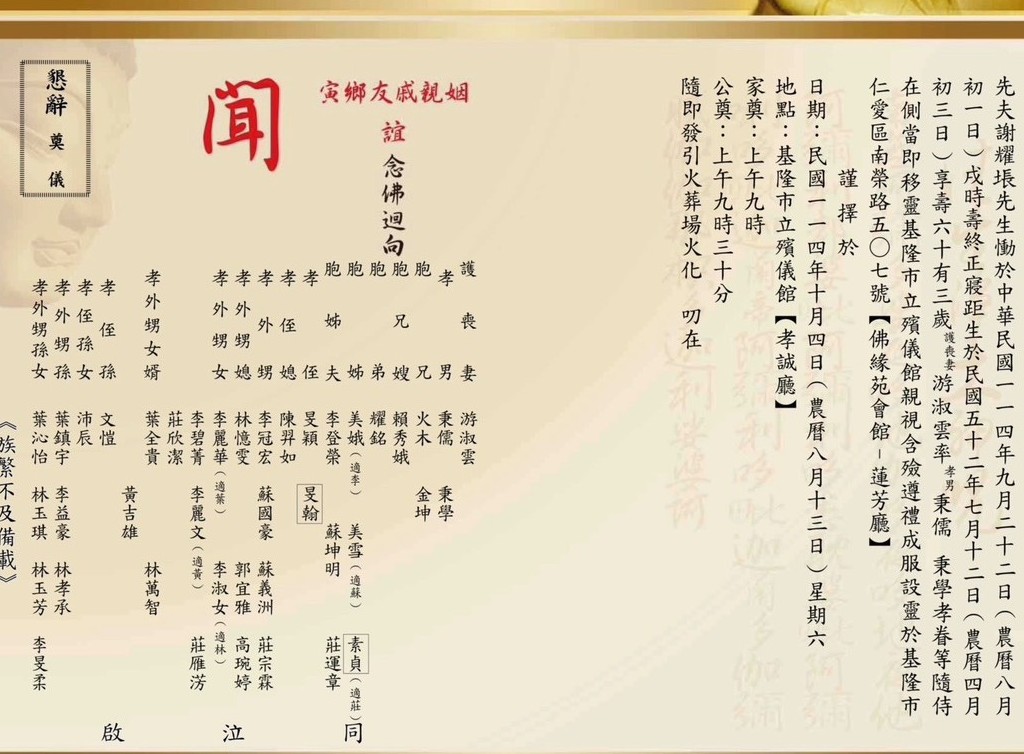 先夫謝耀垠先生慟於中華民國一一四年九月二十二日（農曆八月
初一日）戌時壽終正寢距生於民國五十二年七月十二日（農曆四月
初三日）享壽六十有三歲護喪妻游淑雲率孝男秉儒　秉學孝眷等隨侍
在側當即移靈基隆市立殯儀館親視含殮遵禮成服設靈於基隆市
仁愛區南榮路五〇七號【佛緣苑會館－蓮芳廳】
謹擇於
日期：民國一一四年十月四日（農曆八月十三日）星期六
地點：基隆市立殯儀館【孝誠廳】
家奠：上午九時
公奠：上午九時三十分
隨即發引火葬場火化　叨在
姻親戚友鄉寅
誼　念佛迴向
聞
護喪妻　游淑雲
孝男　秉儒　秉學
胞兄　火木　金坤
胞兄嫂　賴秀娥
胞弟　耀銘
胞姊　美娥（適李）　美雪（適蘇）　素貞（適莊）
胞姊夫　李登榮　蘇坤明　莊運章
孝侄　旻穎　旻翰
孝侄媳　陳羿如
孝外甥　李冠宏　蘇國豪　蘇義洲　莊宗霖
孝外甥媳　林憶雯　郭宜雅　高琬婷
孝外甥女　李麗華（適葉）　李淑女（適林）
李碧菁　李麗文（適黃）　莊雁涝
莊欣潔
孝外甥女婿　葉全貴　林萬智
黃吉雄
孝侄孫　文愷
孝侄孫女　沛辰
孝外甥孫　葉鎮宇　李益豪　林孝承
孝外甥孫女　葉沁怡　林玉琪　林玉芳　李旻柔
《族繁不及備載》
同泣啟
懇辭　奠儀